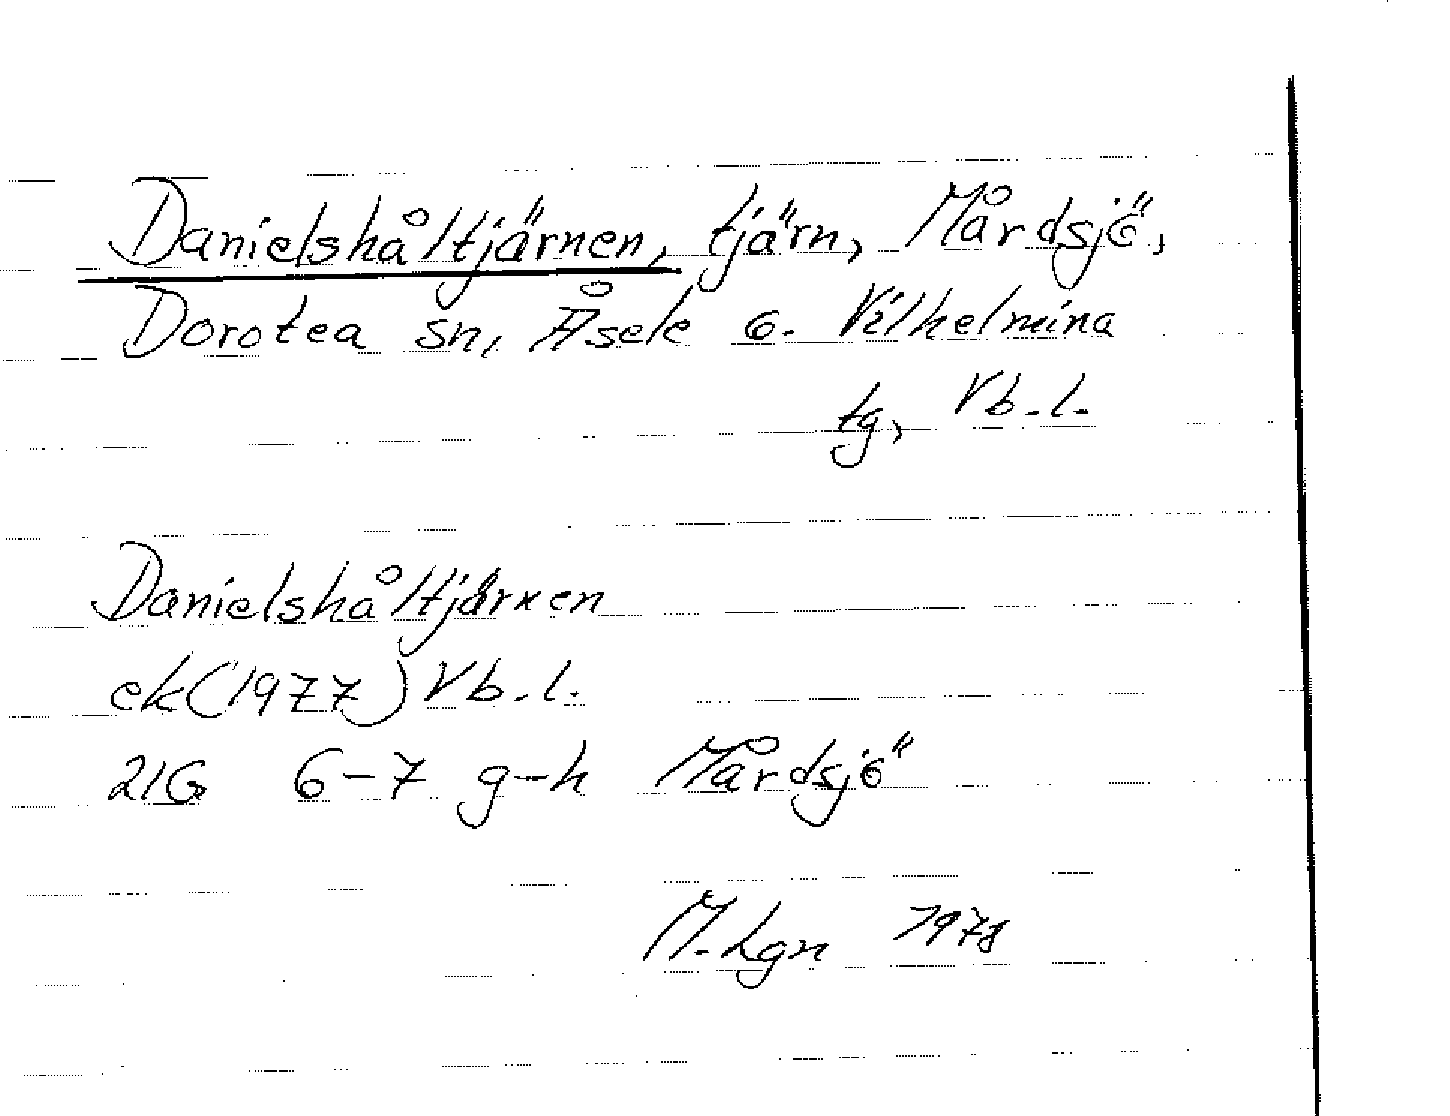 Danielshåltjärnen, tjärn, Mårdsjö,
Dorotea sn, Åsele o. Vilhelmina
tg, Vb. l.
Danielshåltjärnen
ek (1977) Vb. l.
21G 6-7 g-h Mårdsjö
M. Lgn 1978